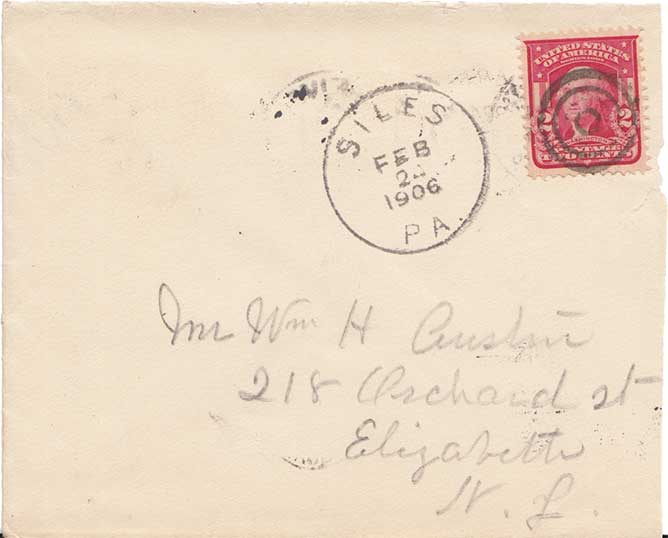 UNITED STATES
OF AMERICA
2 2
TWO CENTS
SILES
FEB
2
1906
PA.
Mr Wm H Austin
218 Orchard st
Elizabeth
N. J.